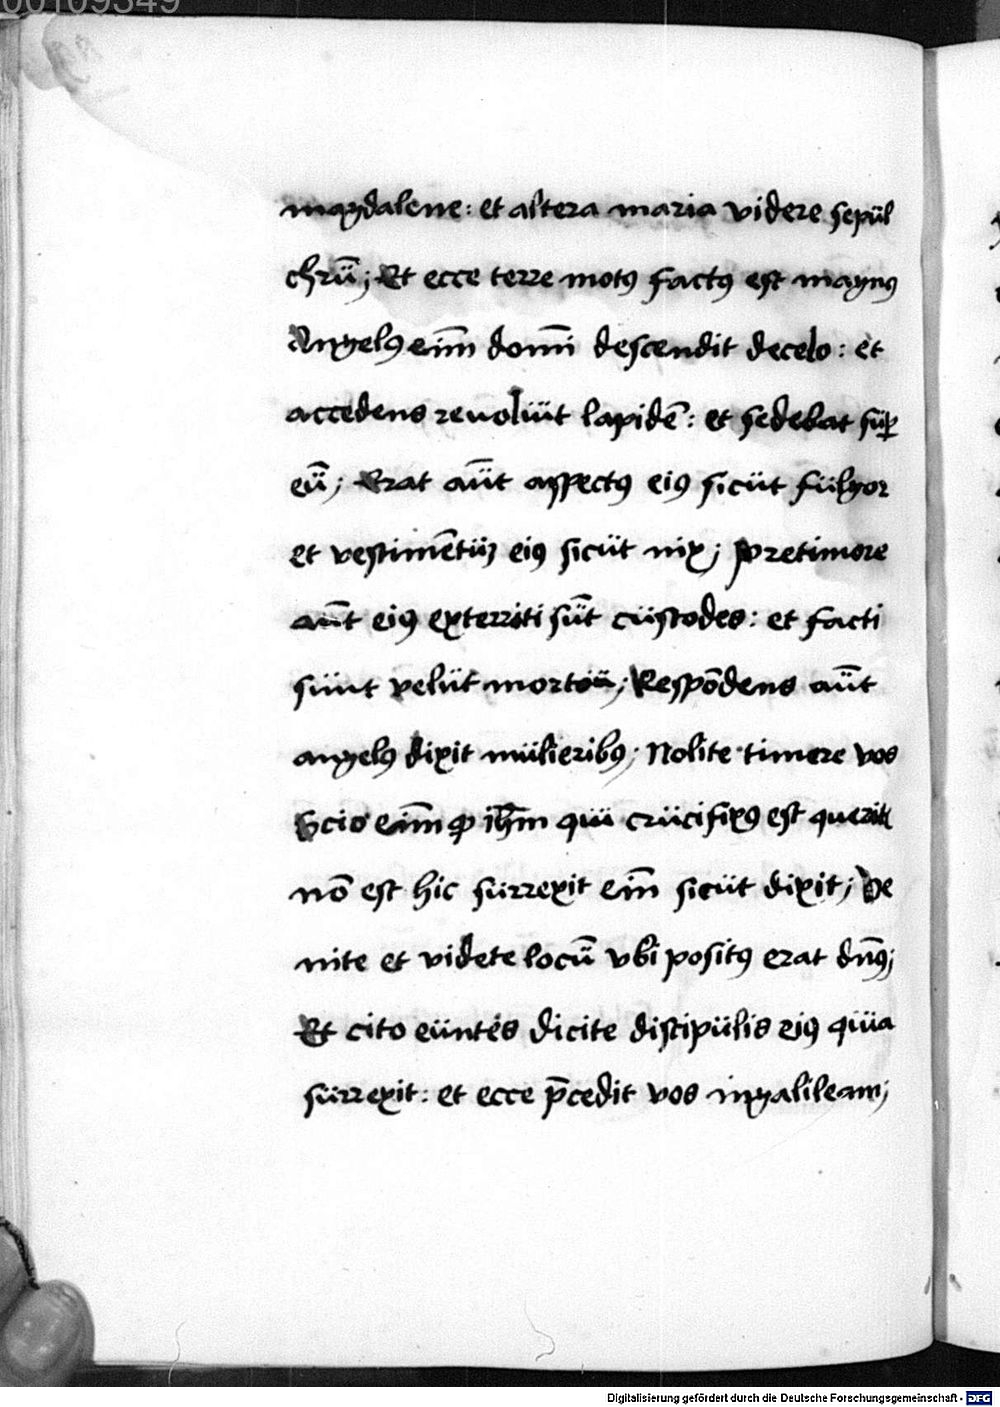 00109349
magdalene: et altera maria videre sepul
chrū; Et ecce terre motꝰ factꝰ est magnꝰ
Angelꝰ enīm domī descendit decelo: et
accedens reuoluit lapidē: et sedebat suꝑ
eū; Erat aūt aspectꝰ eiꝰ sicut fulgor
et vestimētū eiꝰ sicut nix; Pretimore
aūt eiꝰ exterriti sūt custodes: et facti
sunt velut mortui; Respōdens aūt
angelꝰ dixit mulieribꝰ; Nolite timere vos
Scio enīm ꝙ ihm̄ qui crucifixꝰ est querit
nō est hic surrexit enī sicut dixit; Ve
nite et videte locū vbi positꝰ erat dn̄s;
Et cito euntes dicite discipulis eiꝰ quia
surrexit: et ecce p̄cedit vos ingalileam;
Digitalisierung gefördert durch die Deutsche Forschungsgemeinschaft - DFG